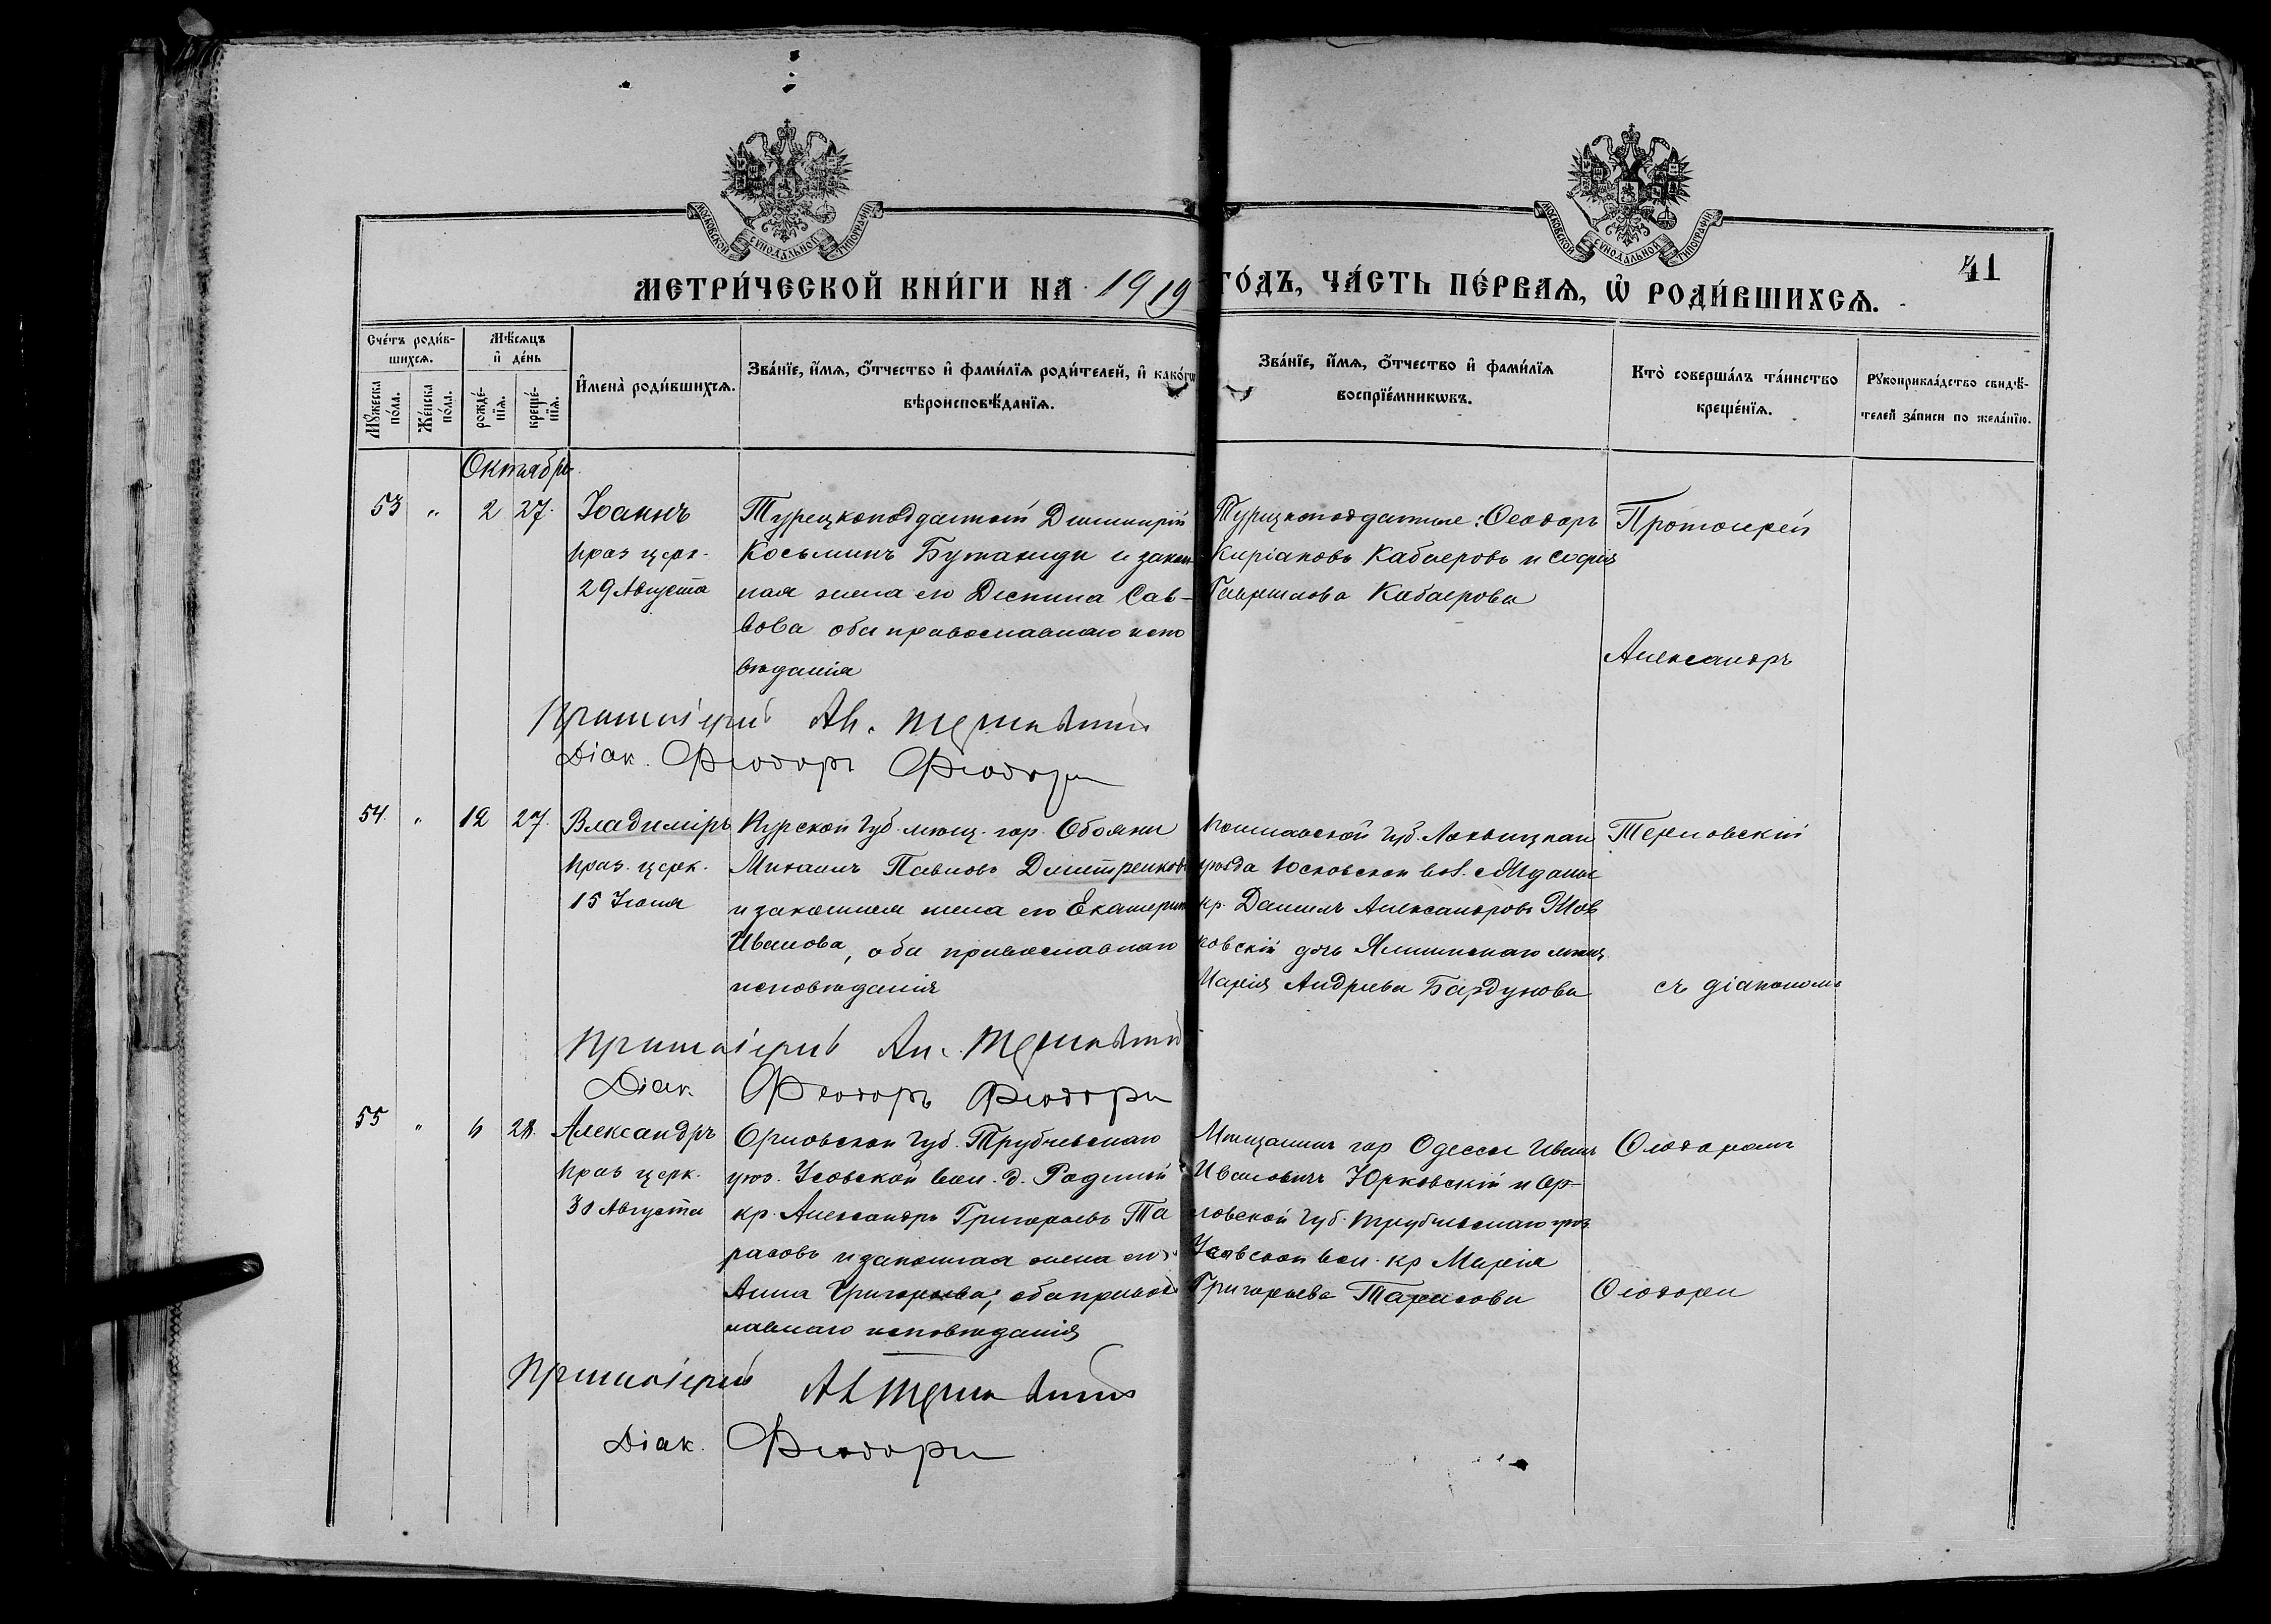 МОСКОВСКОЙ СУНОДАЛЬНОЙ ТИПОГРАФІИ
МОСКОВСКОЙ СУНОДАЛЬНОЙ ТИПОГРАФІИ
МЕТРИ́ЧЕСКОЙ КНИ́ГИ НА 1919
ГО́ДЪ, ЧА́СТЬ ПЕ́РВАѦ, Ѽ РОДИ́ВШИХСѦ.
41
Сче́тъ роди́в-
шихсѧ.
Мꙋ́жеска
по́ла.
Же́нска
по́ла.
Мѣ́сѧцъ
и҆ де́нь
рожде́-
нїѧ.
креще́-
нїѧ.
И҆мена̀ роди́вшихсѧ.
Зва́нїе, и҆́мѧ, ѻ҆́тчество и҆ фами́лїѧ роди́телей, и҆ како́гѡ
вѣроисповѣ́данїѧ.
Зва́нїе, и҆́мѧ, ѻ҆́тчество и҆ фами́лїѧ
воспрїе́мникѡвъ.
Кто̀ соверша́лъ та́инство
креще́нїѧ.
Рꙋкоприкла́дство свидѣ́-
телей за́писи по жела́нїю.
Октябрь
53 " 2 27.
Іоаннъ
праз церк.
29 Августа
Турецкоподданный Димитрій
Косьминъ Бутаниди и закон-
ная жена его Деспина Сав-
вова оба православнаго испо
вѣданія
Турецкоподданные: Ѳеодоръ
Киріаковъ Кабаеровъ и Софія
Гаврилова Кабаерова
Протоиерей
Александръ
Протоіерей Ал. Терновский
Діак. Феодоръ Феодори
54. " 12 27.
Владиміръ
праз. церк.
15 Іюля
Курской губ. мѣщ. гор. Обояни
Михаилъ Павловъ Дмитренковъ
и законная жена его Екатерина
Иванова, оба православнаго
исповѣданія
Полтавской губ. Лохвицкаго
уѣзда Юсковской вол.
кр. Даниилъ Александровъ
дочь Ялтинскаго мѣщ.
Марія Андреева Бардукова
Терновскій
съ діакономъ
Протоіерей Ал. Терновский
Діак. Феодоръ Феодори
55 " 6 28.
Александръ
праз церк.
30 Августа
Орловской губ. Трубчевскаго
уѣз. Усовской вол. д. Радинской
кр. Александръ Григорьевъ Та
расовъ и законная жена его
Анна Григорьева, оба правос
лавнаго исповѣданія
Мѣщанинъ гор Одессы Иванъ
Ивановичъ Юрковскій и Ор-
ловской губ. Трубчевскаго уѣз.
Усовской вол. кр Марія
Григорьева Тарасова
Ѳеодоромъ
Ѳеодори
Протоіерей Ал Терновский
Діак. Феодори